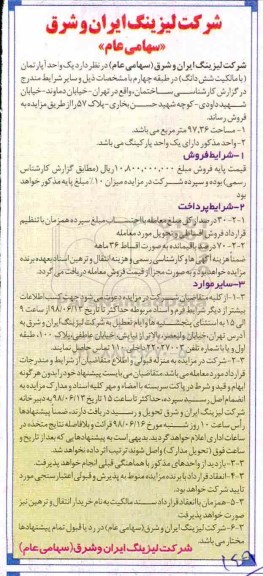 شرکت لیزینگ ایران و شرق
«سهامی عام»
شرکت لیزینگ ایران و شرق (سهامی عام) در نظر دارد یک واحد آپارتمان
(با مالکیت شش دانگ) در طبقه چهارم با مشخصات ذیل و سایر شرایط مندرج
در گزارش کارشناسی ساختمان، واقع در تهران - خیابان دماوند - خیابان
شهید داودی - کوچه شهید حسن بخاری - پلاک ۵۷ را از طریق مزایده به
فروش رساند.
۱- مساحت ۹۷,۳۶ متر مربع می باشد.
۲- واحد مذکور دارای یک واحد پارکینگ می باشد.
۱- شرایط فروش
قیمت پایه فروش مبلغ ۱۰,۸۰۰,۰۰۰,۰۰۰ ریال (مطابق گزارش کارشناس
رسمی) بوده و سپرده شرکت در مزایده میزان ۱۰٪ مبلغ پایه مذکور خواهد
بود
۲- شرایط پرداخت
۱-۲- ۳۰ درصد از کل مبلغ معامله با احتساب مبلغ سپرده همزمان با تنظیم
قرارداد فروش اقساطی و تحویل مورد معامله
۲-۲- ۷۰ درصد باقیمانده به صورت اقساط ۳۶ ماهه
ضمناً هزینه آگهی ها و کارشناسی رسمی و هزینه انتقال و ترهین اسناد بعهده برنده
مزایده خواهد بود و به صورت مجزا از قیمت فروش معامله دریافت می گردد.
۳- سایر موارد
۱-۳- از کلیه متقاضیان شرکت در مزایده دعوت می شود جهت کسب اطلاعات
بیشتر از دیگر شرایط فرم و اسناد مربوطه حداکثر تا تاریخ ۹۸/۰۶/۱۳ از ساعت ۹
الی ۱۵ به استثنای پنجشنبه ها و ایام تعطیل به شرکت لیزینگ ایران و شرق به
آدرس تهران، خیابان ولیعصر، بالاتر از نیایش، خیابان عاطفی، پلاک ۱۰۰، طبقه
اول و یا با شماره تلفن ۲۲۰۲۷۰۰۳ داخلی ۱۱۱ تماس حاصل نمایند.
۲-۳- شرکت در مزایده به منزله قبولی و اطلاع متقاضیان از شرایط و مندرجات
قرارداد مورد معامله می باشد. متقاضیان می بایست پیشنهاد خود را بدون هر گونه
ابهام و قید و شرط در پاکت سربسته با امضاء و مهر کلیه اسناد و مدارک مزایده به
انضمام اصل رسید سپرده، حداکثر تا ساعت ۱۵ تاریخ ۹۸/۰۶/۱۳ به دبیرخانه
شرکت لیزینگ ایران و شرق تحویل و رسید دریافت دارند، ضمناً پیشنهادها
رأس ساعت ۱۰ روز شنبه مورخ ۹۸/۰۶/۱۶ قرائت و بلافاصله نتایج متخذه در
ساعات اداری اعلام خواهد گردید. بدیهی است به پیشنهادهایی که بعد از تاریخ و
ساعت فوق (تحویل مدارک) واصل شوند ترتیب اثر داده نخواهد شد.
۳-۳- بازدید از واحدهای مذکور با هماهنگی قبلی انجام خواهد پذیرفت.
۴-۳- انعقاد قرارداد با برنده مزایده منوط به پذیرش و قبولی اعتبار سنجی مورد
تایید شرکت خواهد بود.
۵-۳- همزمان با انعقاد قرارداد سند مالکیت به نام خریدار انتقال و ترهین نیز
صورت خواهد پذیرفت
۶-۳- شرکت لیزینگ ایران و شرق (سهامی عام) در رد یا قبول تمام پیشنهادها
مختار می باشد.
شرکت لیزینگ ایران و شرق (سهامی عام)